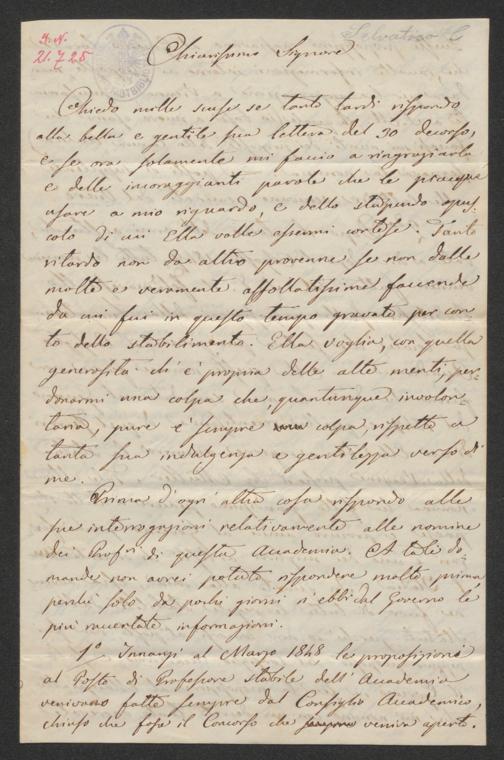 I. N.
21.725
Selvatico
Chiarissimo Signore
Chiedo mille scuse se tanto tardi rispondo
alla bella e gentile sua lettera del 30 decorso,
e se ora solamente mi faccio a ringraziarla
e delle incoraggianti parole che le piacque
usare a mio riguardo, e dello stupendo opus-
colo di cui Ella volle essermi cortese. Tanto
ritardo non da altro provenne se non dalle
molte e veramente affollatissime faccende
da cui fui in questo tempo gravato per con
to dello stabilimento. Ella voglia, con quella
generosità ch' è propria delle alte menti, per-
donarmi una colpa che quantunque involon
taria, pure è sempre colpa rispetto a
tanta sua indulgenza e gentilezza verso di
me.
Prima d'ogni altra cosa rispondo alle
sue interrogazioni relativamente alle nomine
dei Profri di questa Accademia. A tali do
mande non avrei potuto rispondere molto prima
perchè solo da pochi giorni s'ebbi dal Governo le
più racertate informazioni.
1º Innanzi al Marzo 1848 le proposizioni
al Posto di Professore stabile dell'Accademia
venivano fatte sempre dal Consiglio Accademico,
chiuso che fosse il Concorso che veniva aperto.